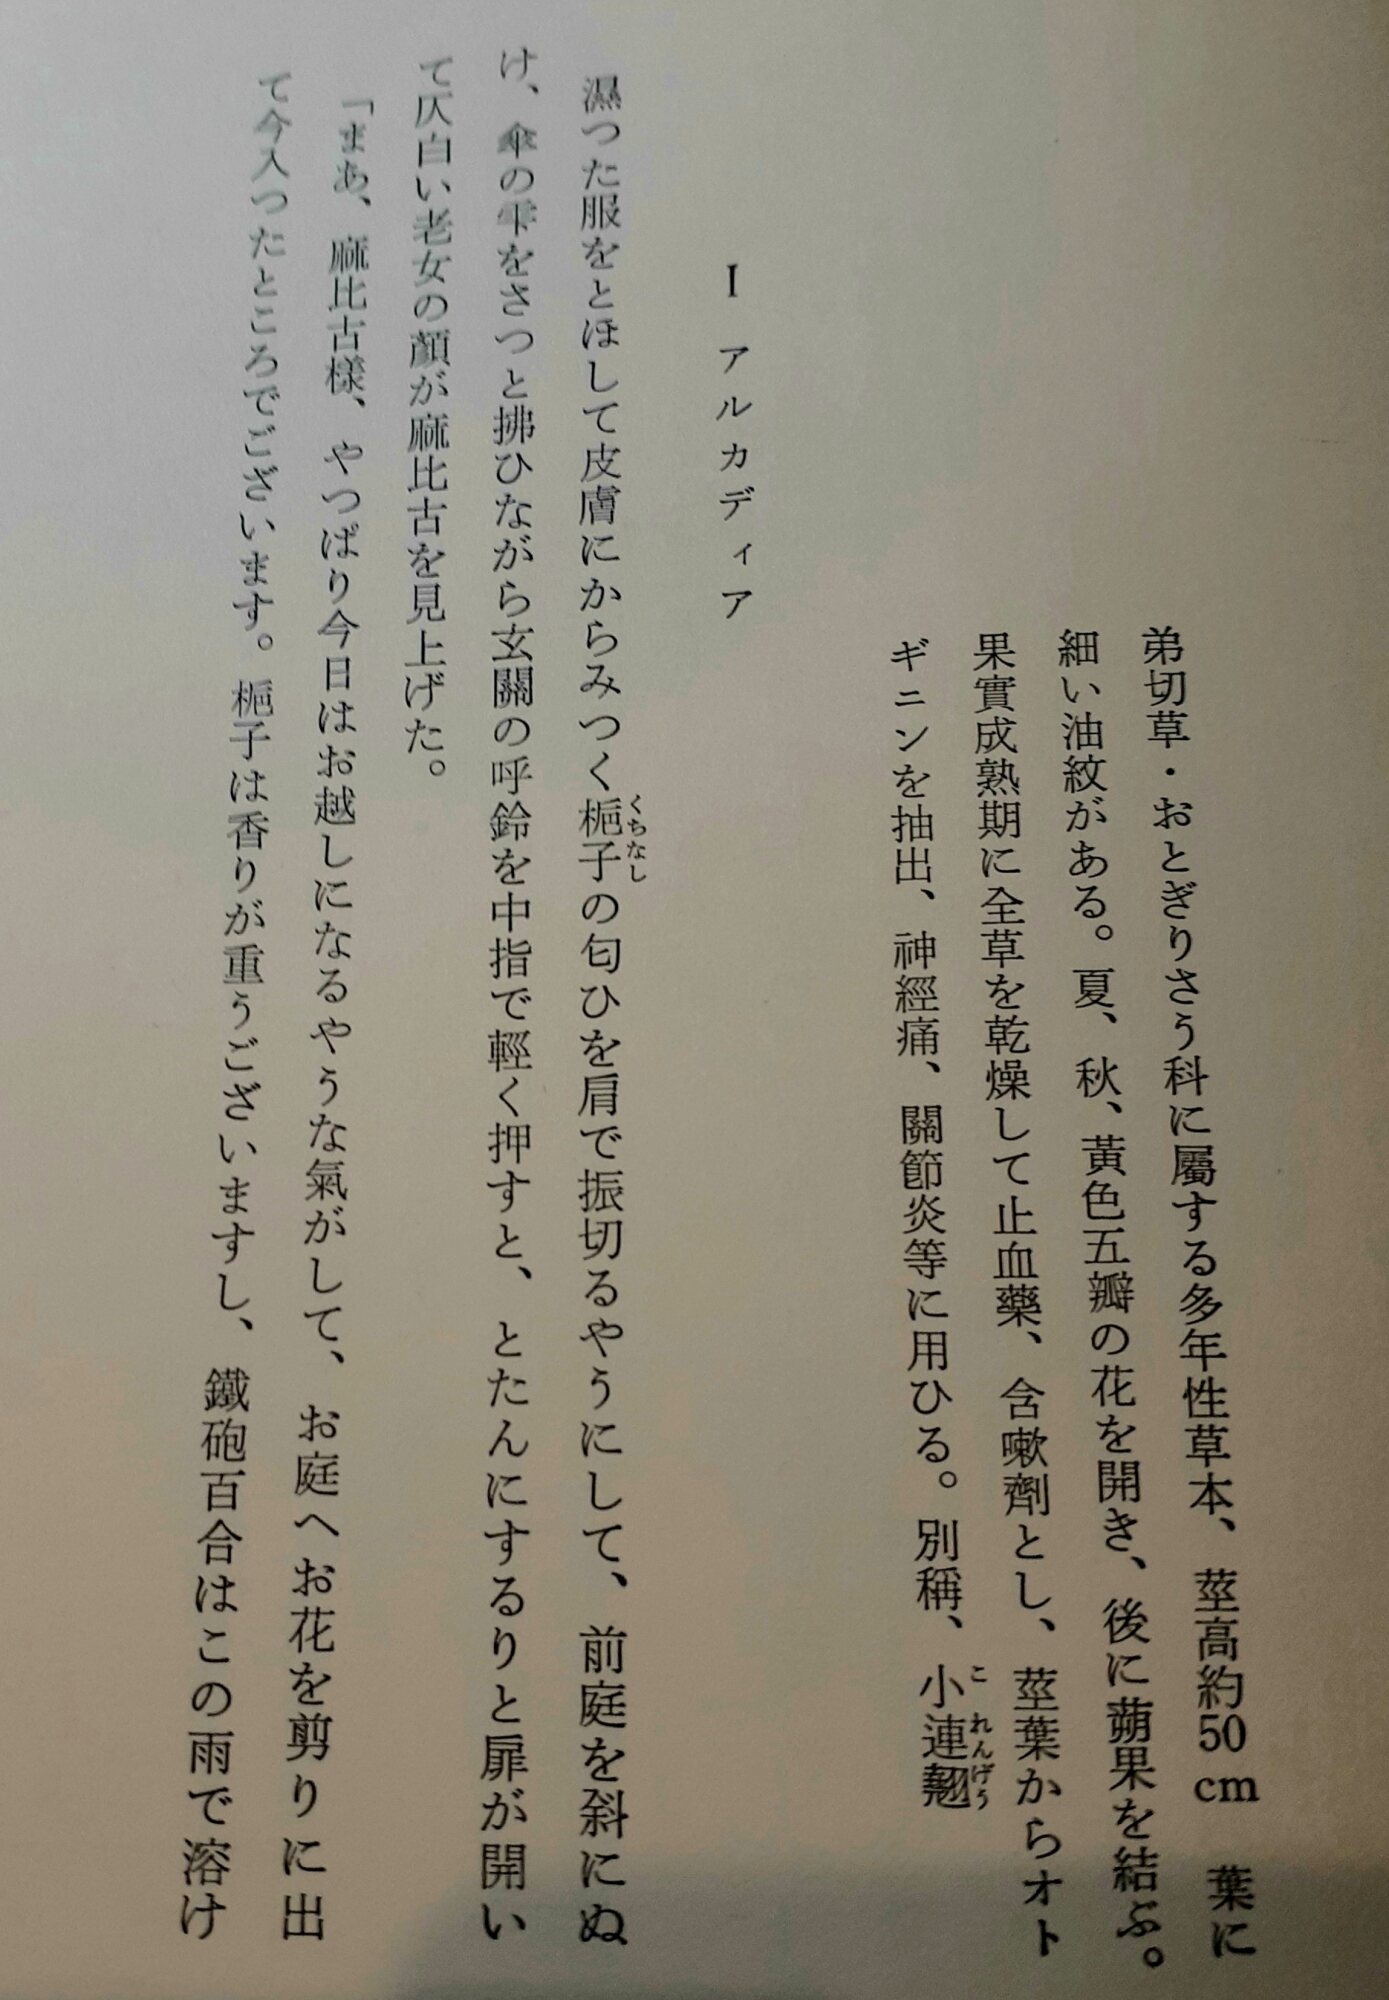 弟切草・おとぎりさう科に屬する多年性草本、莖高約50cm 葉に
細い油紋がある。夏、秋、黃色五瓣の花を開き、後に蒴果を結ぶ。
果實成熟期に全草を乾燥して止血藥、含嗽劑とし、莖葉からオト
ギニンを抽出、神經痛、關節炎等に用ひる。別稱、小連翹
これんげう
I アルカディア
濕つた服をとほして皮膚にからみつく梔子の匂ひを肩で振切るやうにして、前庭を斜にぬ
くちなし
け、傘の雫をさつと拂ひながら玄關の呼鈴を中指で輕く押すと、とたんにするりと扉が開い
て仄白い老女の顏が麻比古を見上げた。
「まあ、麻比古樣、やつぱり今日はお越しになるやうな氣がして、お庭へお花を剪りに出
て今入つたところでございます。梔子は香りが重うございますし、鐵砲百合はこの雨で溶け